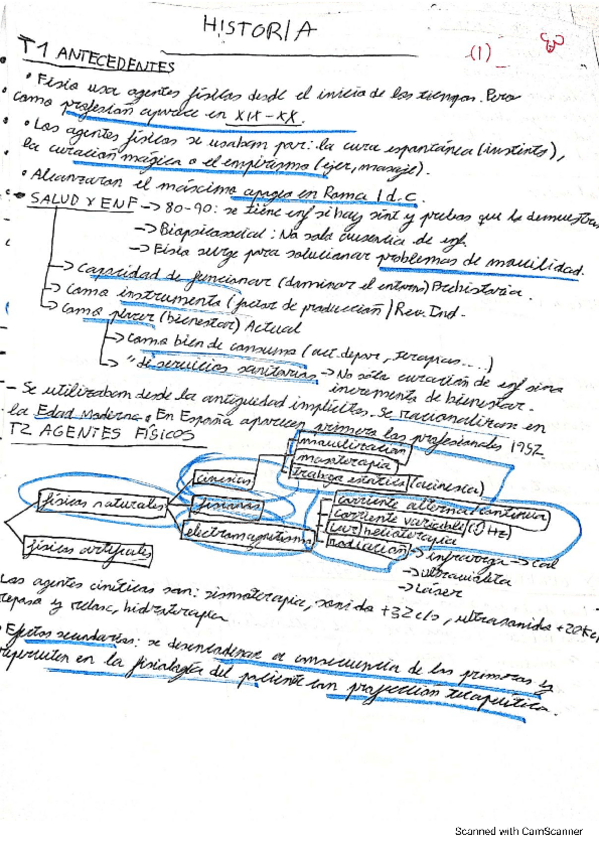 HISTORIA
(1)
T1 ANTECEDENTES
• Fisio usa agentes físicos desde el inicio de los tiempos. Pero
como profesión aparece en XIX-XX.
• Los agentes físicos se usaban por: la cura espontánea (instinto),
la curación mágica o el empirismo (ejer, masaje).
• Alcanzaron el máximo apogeo en Roma I d.C.
• SALUD Y ENF -> 80-90: se tiene enf si hay sint y pruebas que lo demuestran
-> Biopsicosocial: No solo ausencia de enf.
-> Fisio surge para solucionar problemas de movilidad.
-> Capacidad de funcionar (dominar el entorno) Prehistoria.
-> Como instrumento (factor de producción) Rev. Ind.
-> Como placer (bienestar) Actual
-> Como bien de consumo (act. depor, terapias....)
-> " de servicios sanitarios -> No sólo curación de enf sino
incremento de bienestar.
- Se utilizaban desde la antiguedad implícitos. Se racionalizan en
la Edad Moderna. En España aparecen primero los profesionales 1957.
T2 AGENTES FÍSICOS
movilización
masoterapia
trabajo estático (acinesia)
cinesias
físicos naturales
electromagnetismo
corriente alterna/continua
corriente variable (Hz)
luz helioterapia
radiación -> infrarroja -> cal
-> ultravioleta
-> Láser
físicos artificiales
Los agentes cinéticos son: sismoterapia, sonido +32 c/s, ultrasonido +20
reposo y relax, hidroterapia
• Efectos secundarios: se desencadenan a consecuencia de los primeros y
repercuten en la fisiología del paciente con proyección terapéutica.
Scanned with CamScanner